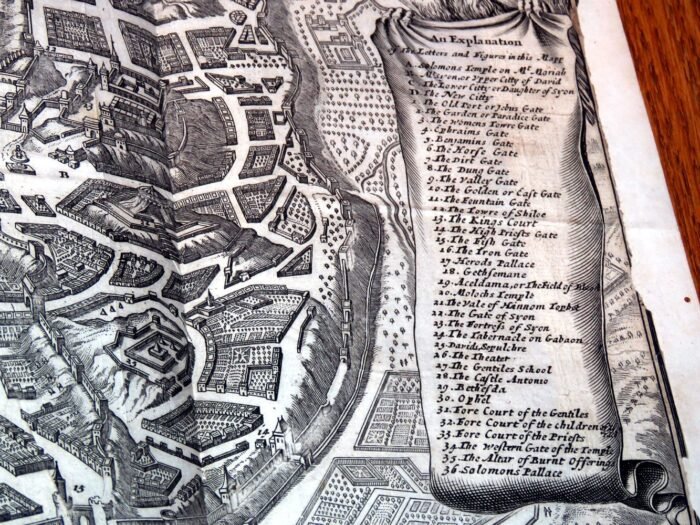 An Explanation
of the Letters and Figures in this Mapp
A. Solomons Temple on Mt. Moriah
B. or Vpper Citty of David
C. The Lower Citty or Daughter of Syon
D. The New Citty
1. The Old Port or Johns Gate
2. The Garden or Paradice Gate
3. The Womens Towre Gate
4. Ephraims Gate
5. Benjamins Gate
6. The Horse Gate
7. The Dirt Gate
8. The Dung Gate
9. The Valley Gate
10. The Golden or East Gate
11. The Fountain Gate
12. The Towre of Shiloe
13. The Kings Court
14. The High Priests Gate
15. The Fish Gate
16. The Iron Gate
17. Herods Pallace
18. Gethsemane
19. Aceldama, or The Field of Blood
20. Molochs Temple
21. The Vale of Hinnom Tophet
22. The Gate of Syon
23. The Fortress of Syon
24. The Tabernacle on Gabaon
25. Davids Sepulchre
26. The Theater
27. The Gentiles School
28. The Castle Antonio
29. Bethesda
30. Ophel
31. Fore Court of the Gentiles
32. Fore Court of the Children of
33. Fore Court of the Priests
34. The Western Gate of the Temple
35. The Altar of Burnt Offerings
36 Solomons Pallace
B
13